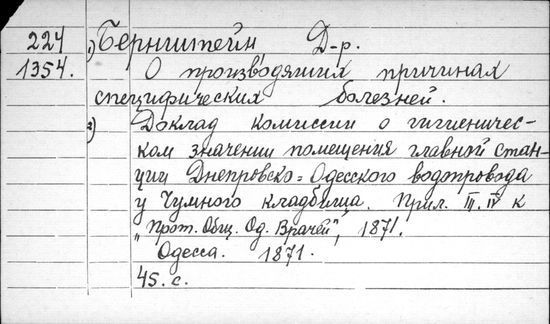 224 1) Бернштейн, Д-р.
1354. О производящих причинах
специфических болезней.
2) Доклад комиссии о гигиеничес-
ком значении помещения главной стан-
ции Днепровско=Одесского водопровода
у Чумного кладбища. Прил. III. IV к
"Прот. Общ. Од. Врачей", 1871.
Одесса. 1871.
45. с.